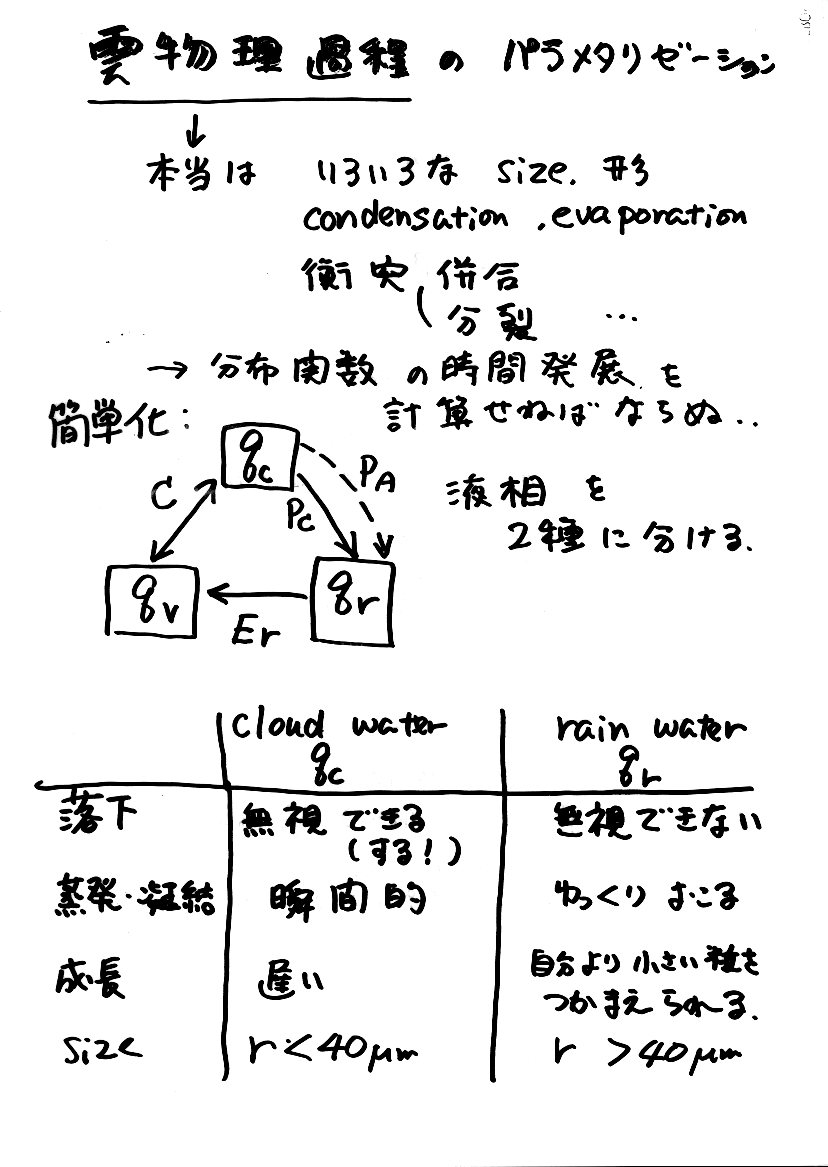 雲物理過程のパラメタリゼーション
↓
本当は いろいろな size. 形
condensation , evaporation
衝突 併合
分裂 …
→ 分布関数の時間発展を
計算せねばならぬ..
簡単化:
qc
C
PA
Pc
液相を
2種に分ける.
qv
Er
qr
cloud water rain water
qc qr
落下 無視できる 無視できない
(する!)
蒸発・凝結 瞬間的 ゆっくりおこる
成長 遅い 自分より小さい粒を
つかまえられる.
size r < 40μm r > 40μm